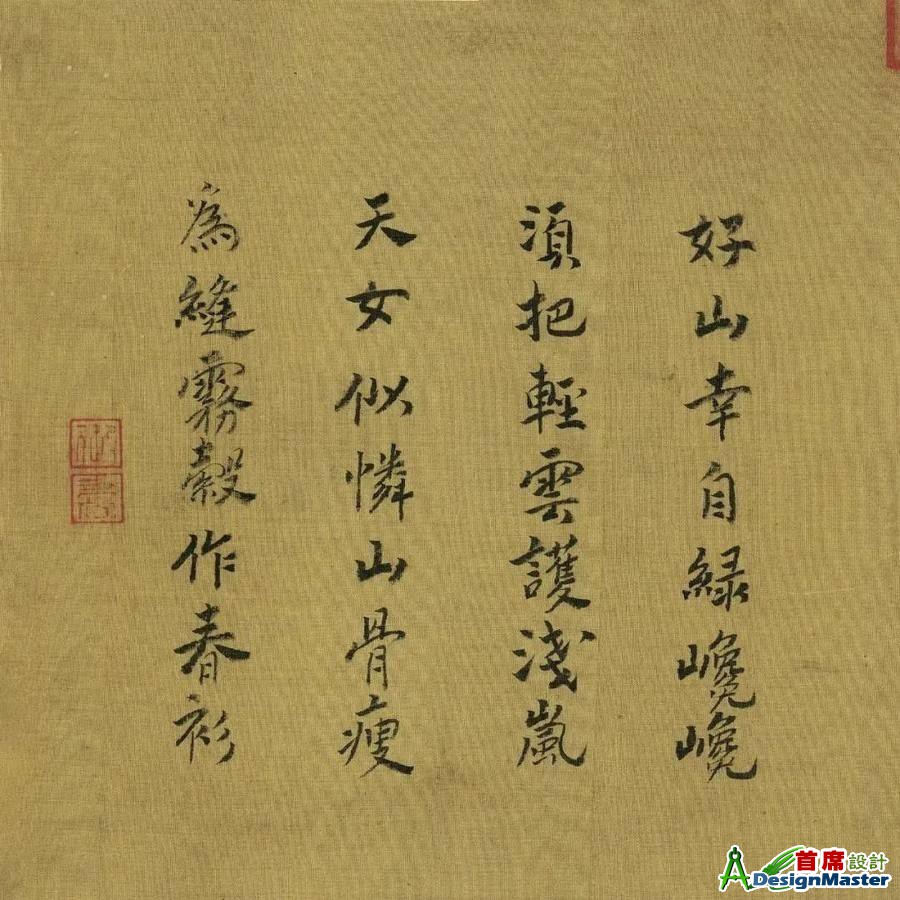 好山幸自綠巉巉
須把輕雲護淺嵐
天女似憐山骨瘦
為縫霧縠作春衫
御書
首席設計
DesignMaster